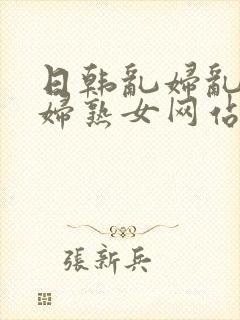 日韩乱婦乱
婦熟女网站
張新兵